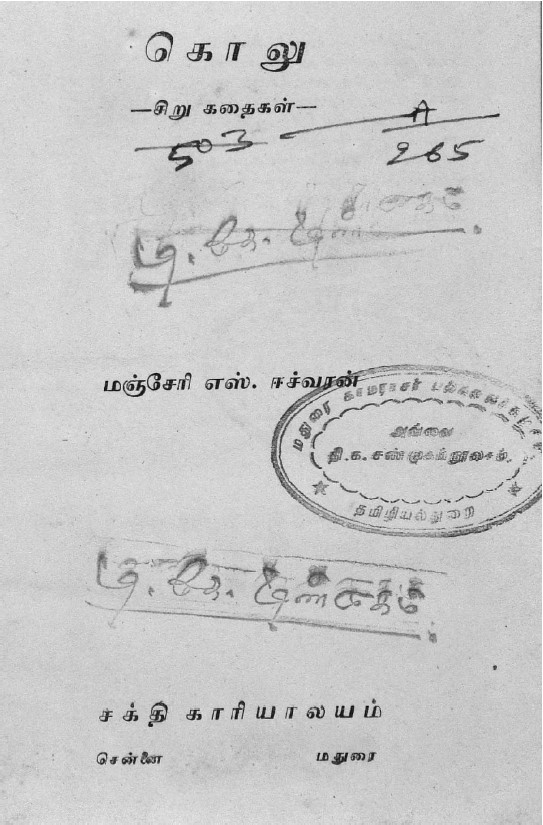 கொலு
—சிறு கதைகள்—
503
A
265
மஞ்சேரி எஸ். ஈச்வரன்
மதுரை காமராசர்
அவ்வை
தி.க.சண்முகம்
தமிழியல்துறை
சக்தி காரியாலயம்
சென்னை மதுரை